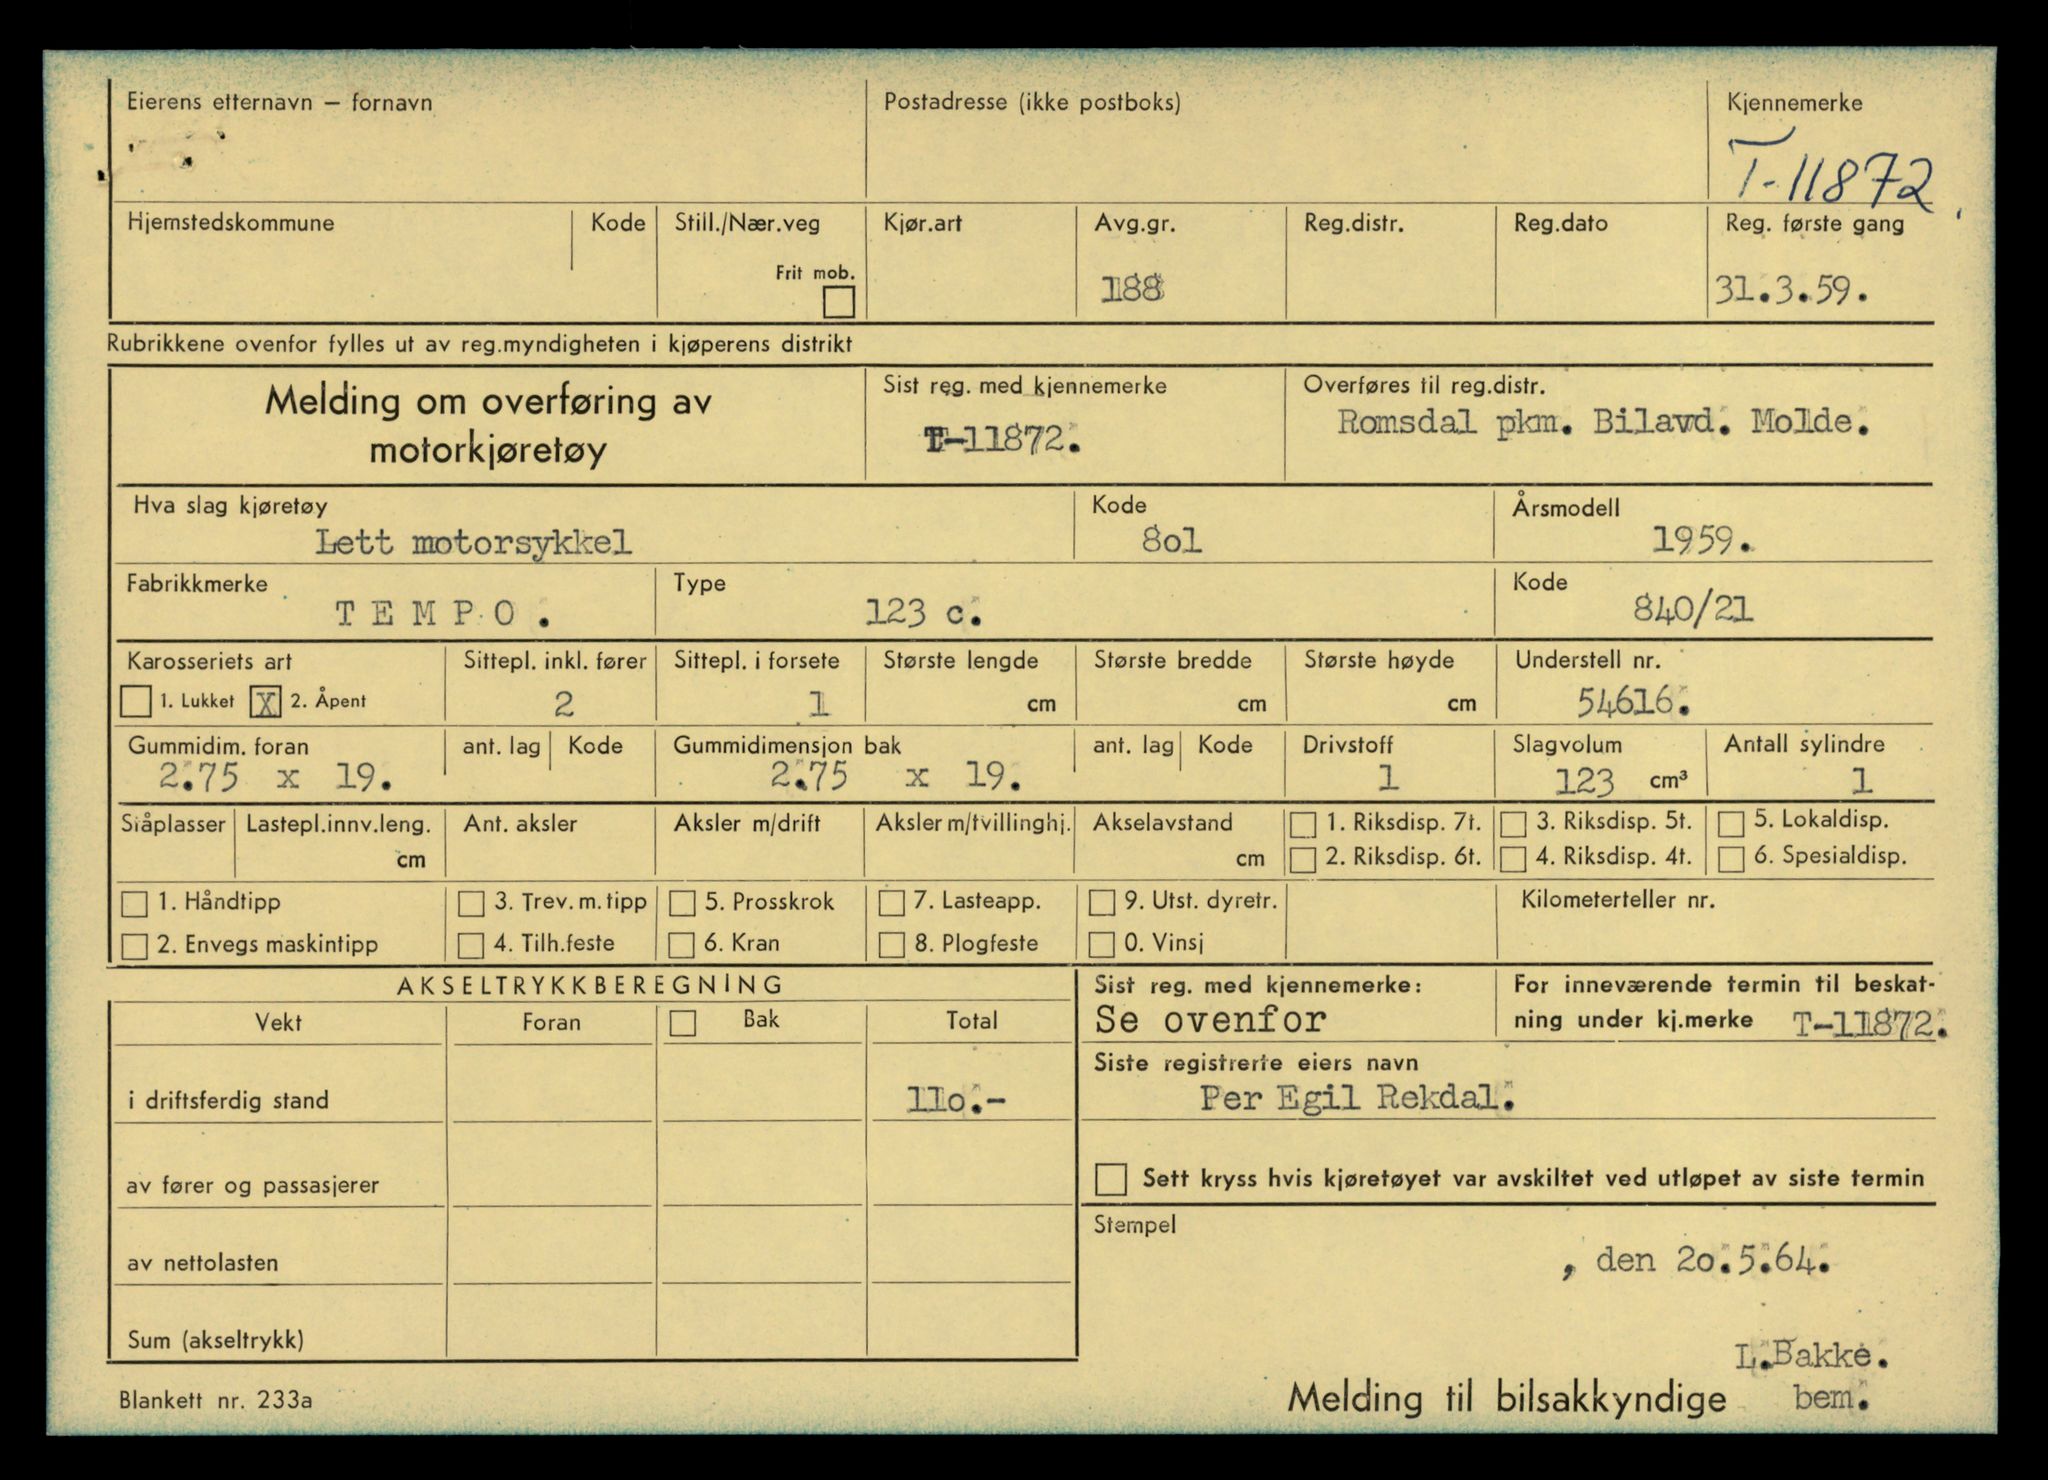 Eierens etternavn – fornavn
Postadresse (ikke postboks)
Kjennemerke
T-11872
Hjemstedskommune
Kode
Still./Nær.veg
Frit mob.
Kjør.art
Avg.gr.
188
Reg.distr.
Reg.dato
Reg. første gang
31.3.59.
Rubrikkene ovenfor fylles ut av reg.myndigheten i kjøperens distrikt
Melding om overføring av
motorkjøretøy
Sist reg. med kjennemerke
T-11872.
Overføres til reg.distr.
Romsdal pkm. Bilavd. Molde.
Hva slag kjøretøy
Lett motorsykkel
Kode
8o1
Årsmodell
1959.
Fabrikkmerke
T E M P O .
Type
123 c.
Kode
840/21
Karosseriets art
1. Lukket X 2. Åpent
Sittepl. inkl. fører
2
Sittepl. i forsete
1
Største lengde
cm
Største bredde
cm
Største høyde
cm
Understell nr.
54616.
Gummidim. foran
2.75 x 19.
ant. lag
Kode
Gummidimensjon bak
2.75 x 19.
ant. lag
Kode
Drivstoff
1
Slagvolum
123 cm³
Antall sylindre
1
Ståplasser
Lastepl.innv.leng.
cm
Ant. aksler
Aksler m/drift
Aksler m/tvillinghj.
Akselavstand
cm
1. Riksdisp. 7t.
2. Riksdisp. 6t.
3. Riksdisp. 5t.
4. Riksdisp. 4t.
5. Lokaldisp.
6. Spesialdisp.
1. Håndtipp
2. Envegs maskintipp
3. Trev. m. tipp
4. Tilh.feste
5. Prosskrok
6. Kran
7. Lasteapp.
8. Plogfeste
9. Utst. dyretr.
0. Vinsj
Kilometerteller nr.
AKSELTRYKKBEREGNING
Vekt
Foran
Bak
Total
i driftsferdig stand
11o.-
av fører og passasjerer
av nettolasten
Sum (akseltrykk)
Sist reg. med kjennemerke:
Se ovenfor
For inneværende termin til beskat-
ning under kj.merke T-11872.
Siste registrerte eiers navn
Per Egil Rekdal.
Sett kryss hvis kjøretøyet var avskiltet ved utløpet av siste termin
Stempel
, den 2o.5.64.
L.Bakke.
bem.
Blankett nr. 233a
Melding til bilsakkyndige